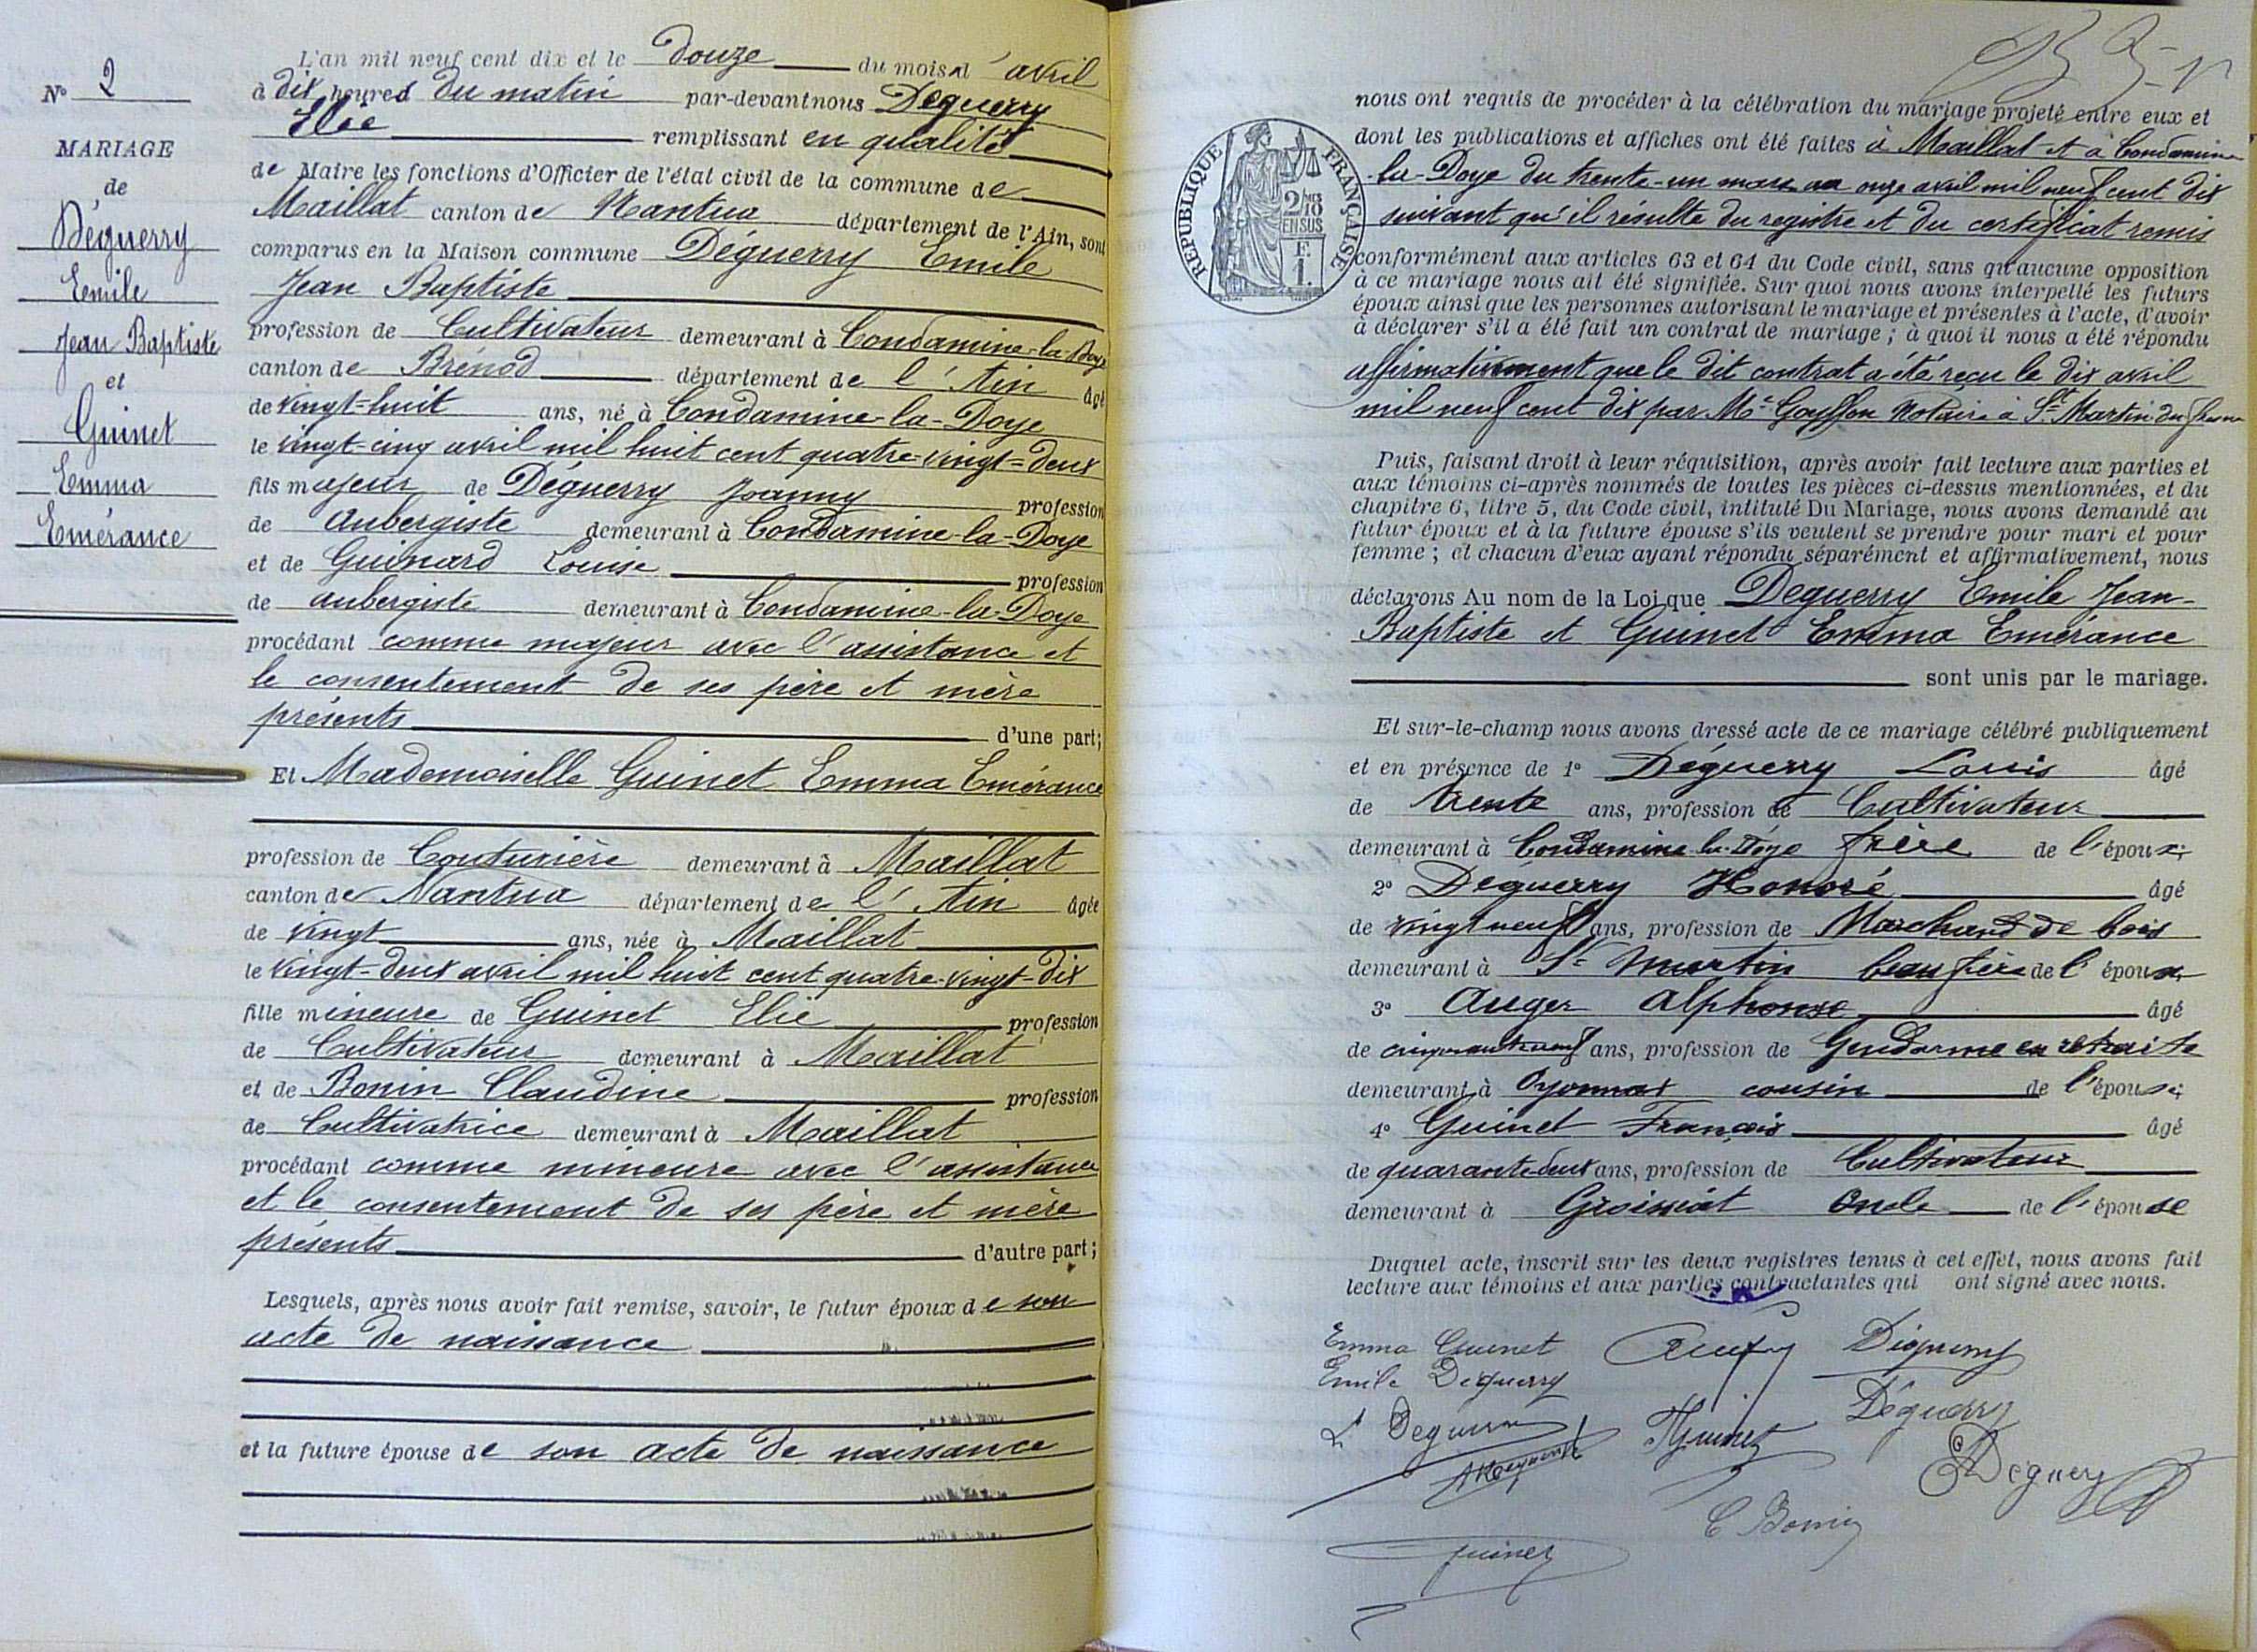 N° 2
MARIAGE
de
Déguerry
Emile
Jean Baptiste
et
Guinet
Emma
Emérance
L'an mil neuf cent dix et le douze du mois d'avril
à dix heures du matin par-devant nous Déguerry
Elie remplissant en qualité
de Maire les fonctions d'Officier de l'état civil de la commune de
Maillat canton de Nantua département de l'Ain, sont
comparus en la Maison commune Déguerry Emile
Jean Baptiste
profession de Cultivateur demeurant à Condamine-la-Doye
canton de Brénod département de l'Ain âgé
de vingt-huit ans, né à Condamine-la-Doye
le vingt-cinq avril mil huit cent quatre-vingt-deux
fils majeur de Déguerry Joanny profession
de Aubergiste demeurant à Condamine-la-Doye
et de Guinard Louise profession
de aubergiste demeurant à Condamine-la-Doye
procédant comme majeur avec l'assistance et
le consentement de ses père et mère
présents d'une part;
Et Mademoiselle Guinet Emma Emérance
profession de Couturière demeurant à Maillat
canton de Nantua département de l'Ain âgée
de vingt ans, née à Maillat
le vingt-deux avril mil huit cent quatre-vingt-dix
fille mineure de Guinet Elie profession
de Cultivateur demeurant à Maillat
et de Bonin Claudine profession
de Cultivatrice demeurant à Maillat
procédant comme mineure avec l'assistance
et le consentement de ses père et mère
présents d'autre part;
Lesquels, après nous avoir fait remise, savoir, le futur époux de son
acte de naissance
et la future épouse de son acte de naissance
RÉPUBLIQUE FRANÇAISE
2/10 MES
EN SUS
F.
1.
nous ont requis de procéder à la célébration du mariage projeté entre eux et
dont les publications et affiches ont été faites à Maillat et à Condamine
-la-Doye du trente-un mars au onze avril mil neuf cent dix
suivant qu'il résulte du registre et du certificat remis
conformément aux articles 63 et 64 du Code civil, sans qu'aucune opposition
à ce mariage nous ait été signifiée. Sur quoi nous avons interpellé les futurs
époux ainsi que les personnes autorisant le mariage et présentes à l'acte, d'avoir
à déclarer s'il a été fait un contrat de mariage ; à quoi il nous a été répondu
affirmativement que le dit contrat a été reçu le dix avril
mil neuf cent dix par Me Goyffon Notaire à St Martin du fresne
Puis, faisant droit à leur réquisition, après avoir fait lecture aux parties et
aux témoins ci-après nommés de toutes les pièces ci-dessus mentionnées, et du
chapitre 6, titre 5, du Code civil, intitulé Du Mariage, nous avons demandé au
futur époux et à la future épouse s'ils veulent se prendre pour mari et pour
femme ; et chacun d'eux ayant répondu séparément et affirmativement, nous
déclarons Au nom de la Loi que Deguerry Emile Jean-
Baptiste et Guinet Emma Emérance
sont unis par le mariage.
Et sur-le-champ nous avons dressé acte de ce mariage célébré publiquement
et en présence de 1° Déguerry Louis âgé
de trente ans, profession de Cultivateur
demeurant à Condamine la-Doye frère de l'époux;
2° Déguerry Honoré âgé
de vingt neuf ans, profession de Marchand de bois
demeurant à St Martin beau frère de l'époux
3° Auger Alphonse âgé
de cinquante neuf ans, profession de Gendarme en retraite
demeurant à Oyonnax cousin de l'époux;
4° Guinet François âgé
de quarante-deux ans, profession de Cultivateur
demeurant à Groissiat Oncle de l'épouse
Duquel acte, inscrit sur les deux registres tenus à cet effet, nous avons fait
lecture aux témoins et aux parties contractantes qui ont signé avec nous.
Emma Guinet
Déguerry
Emile Deguerry
L Deguerry
Déguerry
Guinet
Deguerry
C Bonin
Guinet